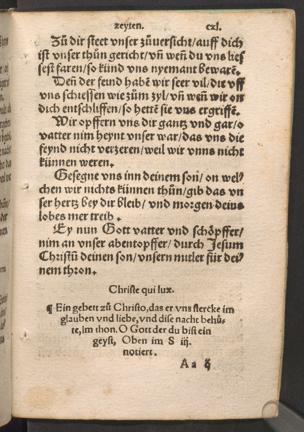 zeyten. cxl.
Zů dir steet vnser zůuersicht/auff dich
ist vnser thůn gericht/vñ weñ du vns lies
sest faren/so künd vns nyemant bewarē.
Deñ der feund habē wir seer vil/die vff
vns schiessen wie zům zyl/vñ weñ wir on
dich entschlieffen/so hettē sie vns ergriffē.
Wir opffern vns dir gantz vnd gar/o
vatter nim heynt vnser war/das vns die
feynd nicht verzeren/weil wir vnns nicht
künnen weren.
Gesegne vns inn deinem son/on wel/
chen wir nichts künnen thůn/gib das vn
ser hertz bey dir bleib/vnd morgen deins
lobes mer treib.
Ey nun Gott vatter vnd schöpffer/
nim an vnser abentopffer/durch Jesum
Christū deinen son/vnsern mitler für dei/
nem thron.
Christe qui lux.
¶ Ein gebett zů Christo, das er vns stercke im
glauben vnd liebe, vnd dise nacht behů-
te, im thon. O Gott der du bist ein
geyst, Oben im S iij.
notiert.
A a